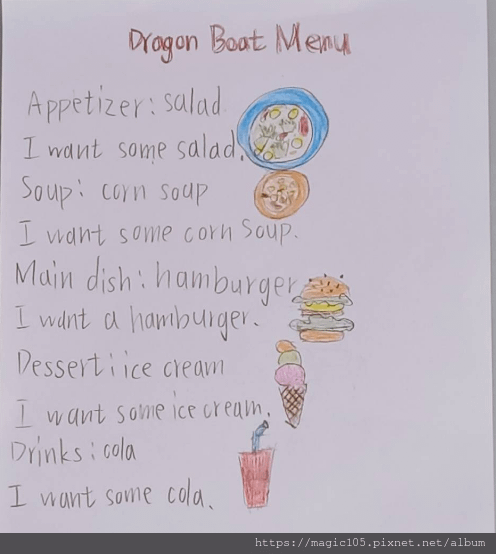 Dragon Boat Menu
Appetizer: salad
I want some salad.
Soup: corn soup
I want some corn soup.
Main dish: hamburger
I want a hamburger.
Dessert: ice cream
I want some ice cream.
Drinks: cola
I want some cola.
https://magic105.pixnet.net/album